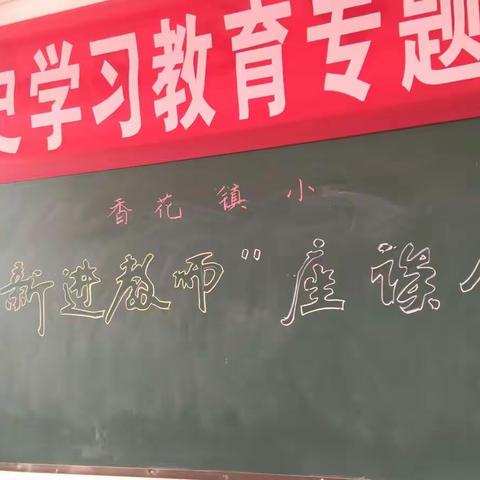 史学习教育专题
香花镇小
新进教师"座谈